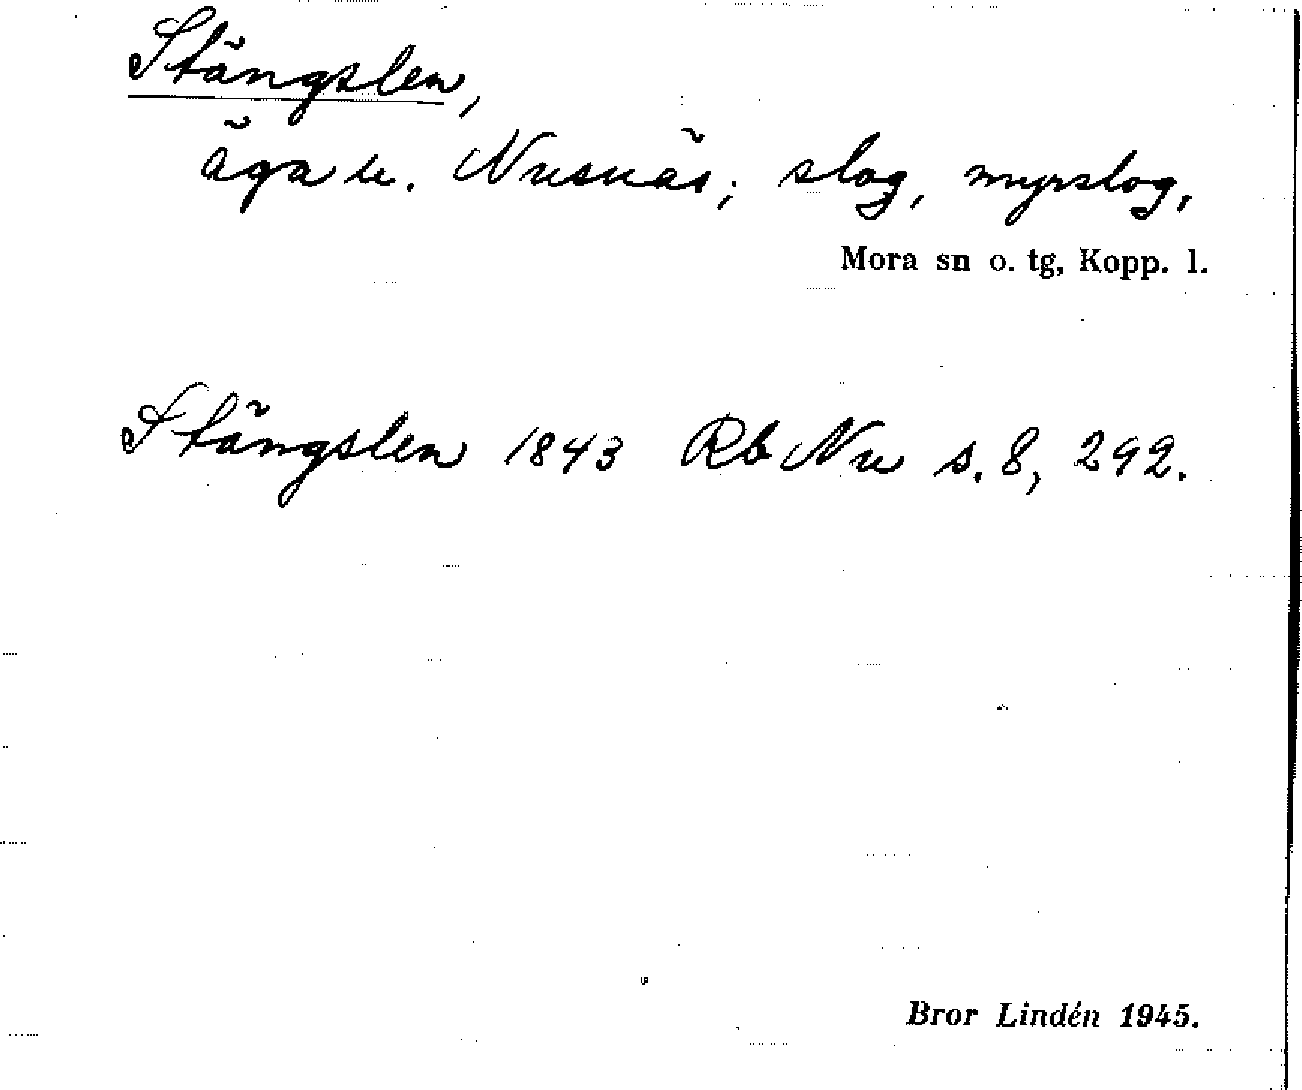 Stängslen,
äga u. Nusnäs; slog, myrslog,
Mora sn o. tg, Kopp. l.
Stängslen 1843 Rb Nu s. 8, 292.
Bror Lindén 1945.